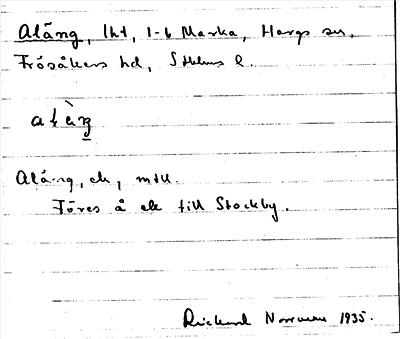 Aläng, lht, 1-6 Marka, Hargs sn,
Frösåkers hd, Sthlms l.
alàŋ
Aläng, ek, mtl.
Föres å ek till Stockby.
Rickard Norrman 1935.